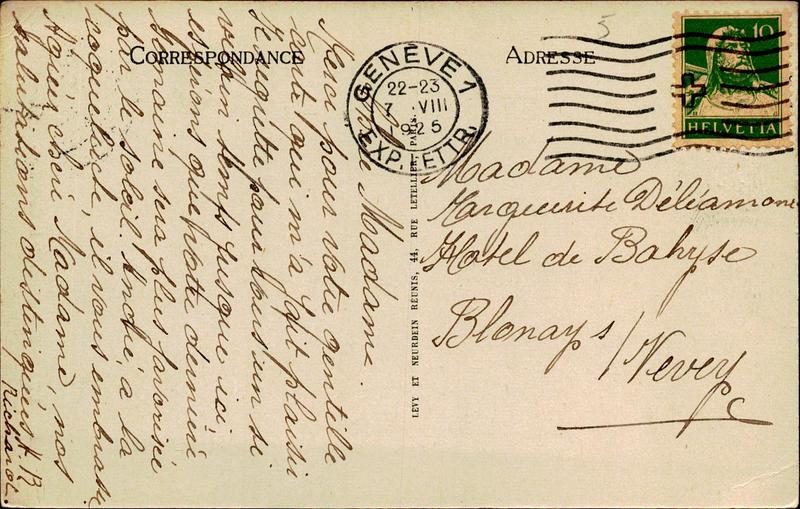 CORRESPONDANCE
Madame
Merci pour votre gentille
carte qui m'a fait plaisir
Je regrette pour vous un si
vilain temps jusque ici,
espérons que votre dernière
semaine sera plus favorisée
par le soleil. André, à la
coqueluche, il vous embrasse
Agréez chère Madame, nos
salutations distinguées
Richard
LEVY ET NEURDEIN RÉUNIS, 44, RUE LETELLIER, PARIS
ADRESSE
5
GENÈVE 1
22-23
7 VIII
1925
EXP. LETTR.
10
HELVETIA
Madame
Marguerite Déléamont
Hôtel de Bahyse
Blonay s/Vevey